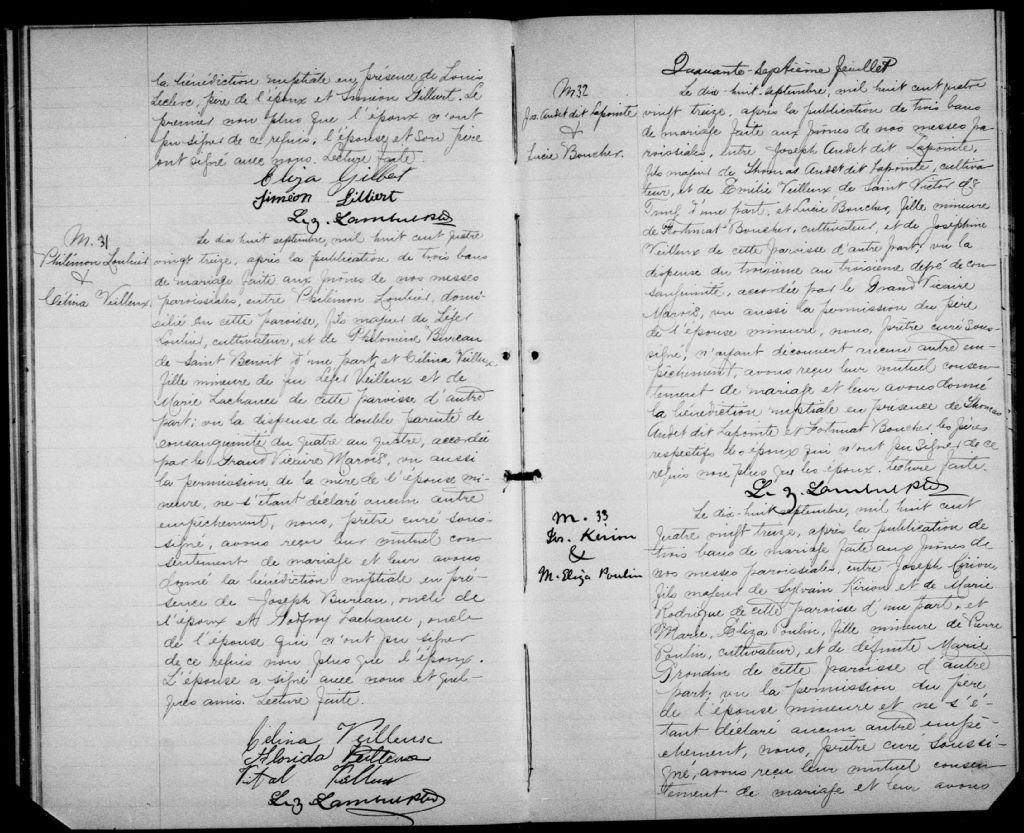 la bénédiction nuptiale en présence de Louis
Leclerc, père de l'époux et Siméon Gilbert. Le
premier non plus que l'époux n'ont
pu signer de ce requis, l'épouse et son père
ont signé avec nous. Lecture faite.
Eliza Gilbert
Siméon Gilbert
Lz. Lambert Ptre
M. 31
Philémon Loubier
&
Célina Veilleux.
Le dix huit septembre, mil huit cent quatre
vingt treize, après la publication de trois bans
de mariage faite aux prônes de nos messes
paroissiales, entre Philémon Loubier, domi-
cilié en cette paroisse, fils majeur de Léger
Loubier, cultivateur, et de Philomène Bureau
de Saint Benoit d'une part, et Célina Veilleux,
fille mineure de feu Léger Veilleux et de
Marie Lachance de cette paroisse d'autre
part; vu la dispense de double parenté de
consanguinité du quatre au quatre, accordée
par le Grand Vicaire Marois, vu aussi
la permission de la mère de l'épouse mi-
neure, ne s'étant déclaré aucun autre
empêchement, nous, prêtre curé sous-
signé, avons reçu leur mutuel con-
sentement de mariage et leur avons
donné la bénédiction nuptiale en pré-
sence de Joseph Bureau, oncle de
l'époux et Godfroy Lachance, oncle
de l'épouse qui n'ont pu signer
de ce requis non plus que l'époux.
L'épouse a signé avec nous et quel-
ques amis. Lecture faite.
Célina Veilleux
Florida Veilleux
Vital
Lz. Lambert Ptre
Quarante-septième feuillet
M 32
Jos. Audet dit Lapointe
&
Lucie Boucher.
Le dix-huit septembre, mil huit cent quatre
vingt treize, après la publication de trois bans
de mariage faite aux prônes de nos messes pa-
roissiales, entre Joseph Audet dit Lapointe,
fils majeur de Thomas Audet dit Lapointe, cultiva-
teur, et de Emilie Veilleux de Saint Victor de
Tring d'une part, et Lucie Boucher, fille mineure
de Fortunat Boucher, cultivateur, et de Joséphine
Veilleux de cette paroisse d'autre part; vu la
dispense du troisième au troisième degré de con-
sanguinité, accordée par le Grand Vicaire
Marois, vu aussi la permission du père
de l'épouse mineure, nous, prêtre curé sous-
signé, n'ayant découvert aucun autre em-
pêchement, avons reçu leur mutuel consen-
tement de mariage et leur avons donné
la bénédiction nuptiale en présence de Thomas
Audet dit Lapointe et Fortunat Boucher, les pères
respectifs des époux qui n'ont pu signer de ce
requis non plus que les époux. Lecture faite.
Lz. Lambert Ptre
M. 33
Jos. Kirion
&
M. Eliza Poulin
Le dix-huit septembre, mil huit cent
quatre vingt treize, après la publication de
trois bans de mariage faite aux prônes de
nos messes paroissiales, entre Joseph Kirion,
fils majeur de Sylvain Kirion et de Marie
Rodrigue de cette paroisse d'une part, et
Marie, Eliza Poulin, fille mineure de Pierre
Poulin, cultivateur, et de défunte Marie
Grondin de cette paroisse d'autre
part; vu la permission du père
de l'épouse mineure et ne s'é-
tant déclaré aucun autre empê-
chement, nous, prêtre curé soussi-
gné, avons reçu leur mutuel consen-
tement de mariage et leur avons